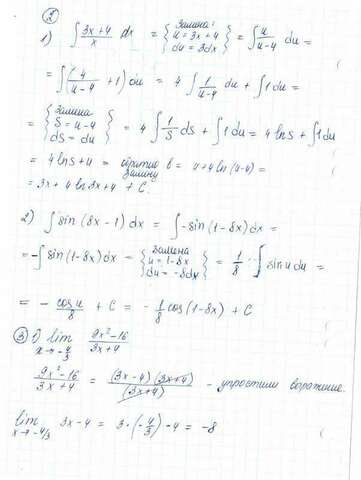 ②
1) ∫ (3x+4)/x dx = { Замена: u = 3x+4 du = 3dx } = ∫ u/(u-4) du =
= ∫ (4/(u-4) + 1) du = 4 ∫ 1/(u-4) du + ∫ 1 du =
= { Замена S = u-4 dS = du } = 4 ∫ 1/S dS + ∫ 1 du = 4 ln S + ∫ 1 du
= 4 ln S + u = обратно в замену = u + 4 ln (u-4) =
= 3x + 4 ln 3x + 4 + C.
2) ∫ sin (8x-1) dx = ∫ -sin (1-8x) dx =
= -∫ sin (1-8x) dx = { Замена u = 1-8x du = -8dx } = 1/8 ∫ sin u du =
= - cos u/8 + C = - 1/8 cos (1-8x) + C
③ 1) lim x→-4/3 (9x²-16)/(3x+4)
(9x²-16)/(3x+4) = (3x-4)(3x+4)/(3x+4) - упростили выражение.
lim x→-4/3 3x-4 = 3·(-4/3)-4 = -8